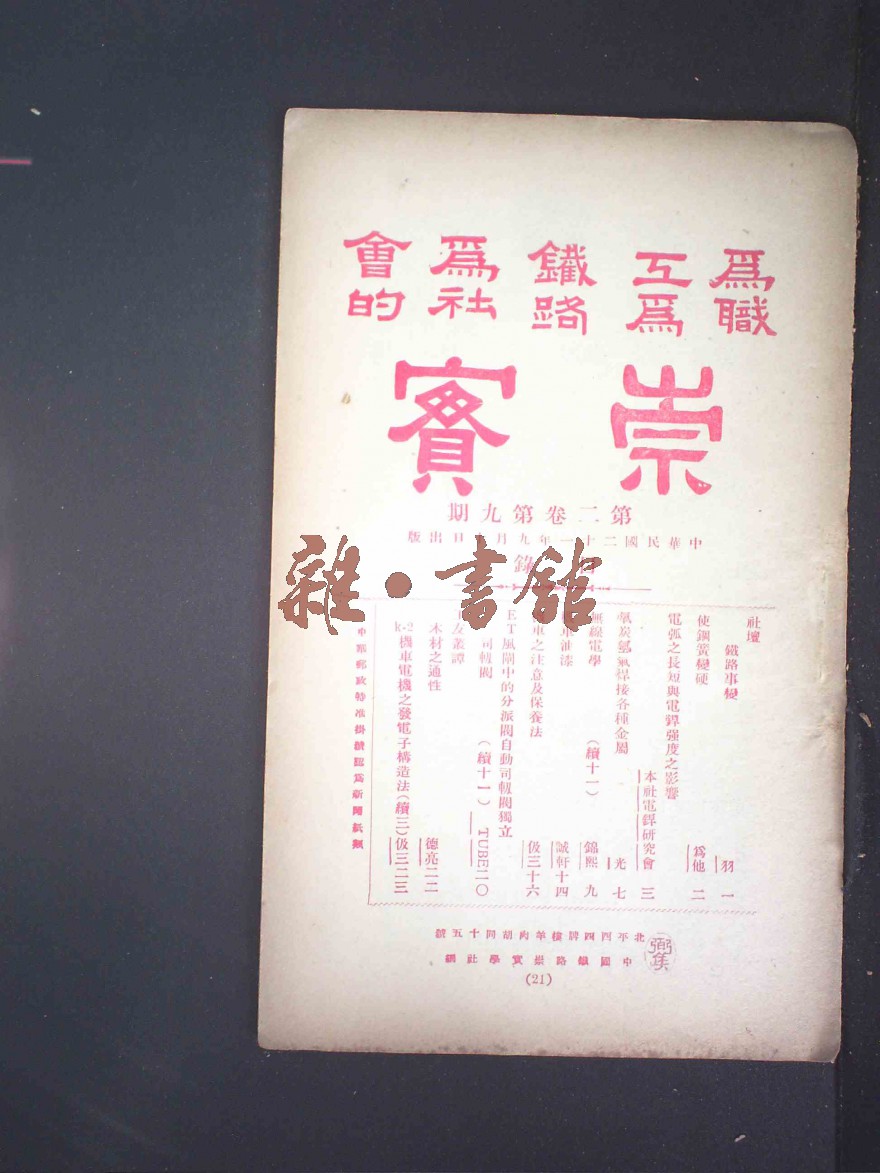 爲職工爲鐵路爲社會的
崇實
第二卷第九期
中華民國二十一年九月 日出版
錄
雜·書館
社壇
鐵路事變 羽 一
使鋼簧變硬 爲他 二
電弧之長短與電銲强度之影響
本社電銲研究會 三
氧炭氫氣焊接各種金屬 光 七
無線電學 (續十一) 錦熙 九
車油漆 誠軒十四
車之注意及保養法 伋三十六
ET風閘中的分派閥自動司軔閥獨立
司軔閥 (續十一) TUBE二〇
友叢譚
木材之通性 德亮二二
k-2機車電機之發電子構造法(續三)伋三二三
中華郵政特准掛號認爲新聞紙類
北平西四牌樓羊肉胡同十五號
中國鐵路崇實學社編
(21)